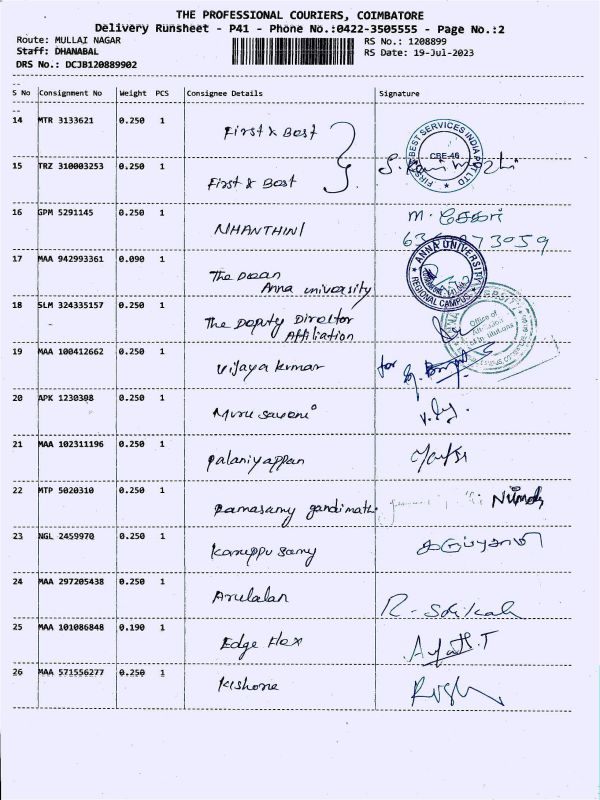 THE PROFESSIONAL COURIERS, COIMBATORE
Delivery Runsheet - P41 - Phone No.:0422-3505555 - Page No.:2
Route: MULLAI NAGAR
Staff: DHANABAL
DRS No.: DCJB120889902
RS No.: 1208899
RS Date: 19-Jul-2023
S No Consignment No Weight PCS Consignee Details Signature
14 MTR 3133621 0.250 1 First & Best
FIRST & BEST SERVICES INDIA PVT LTD
CBE-46
15 TRZ 310003253 0.250 1 First & Best
16 GPM 5291145 0.250 1 NHANTHINI M.
17 MAA 942993361 0.090 1 The Dean
Anna university
ANNA UNIVERSITY
REGIONAL CAMPUS
18 SLM 324335157 0.250 1 The Deputy Director
Affiliation
Office of
19 MAA 100412662 0.250 1 Vijaya kumar for
20 APK 1230308 0.250 1
21 MAA 102311196 0.250 1 Palaniyappan
22 MTP 5020310 0.250 1 Ramasamy gandimathi
23 NGL 2459970 0.250 1 Karuppu Samy
24 MAA 297205438 0.250 1 Arulalan
25 MAA 101086848 0.190 1 Edge Flex
26 MAA 571556277 0.250 1 Kishore